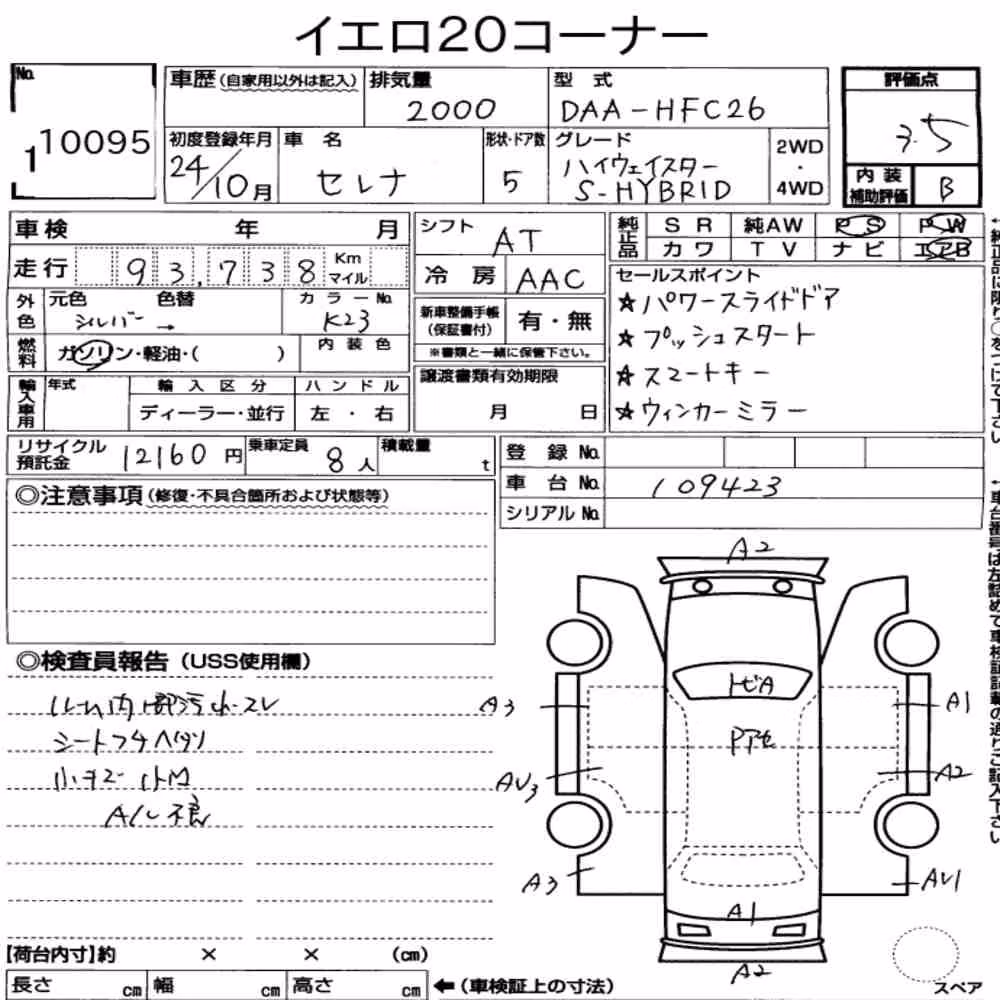 イエロ20コーナー
No. 110095
車歴(自家用以外は記入) 排気量 2000 型式 DAA-HFC26 評価点 3.5
初度登録年月 24/10月 車名 セレナ 形状・ドア数 5 グレード ハイウェイスター S-HYBRID 2WD・4WD 内装補助評価 B
車検 年 月 シフト AT 純正品 SR 純AW PS PW
走行 93,738 Km マイル 冷房 AAC カワ TV ナビ エアB
外色 元色 シルバー → 色替 カラーNo. K23 新車整備手帳(保証書付) 有・無 セールスポイント
※書類と一緒に保管下さい。 ☆パワースライドドア
燃料 ガソリン・軽油・( ) 内装色 ☆プッシュスタート
輸入車用 年式 輸入区分 ハンドル 譲渡書類有効期限 ☆スマートキー
ディーラー・並行 左・右 月 日 ☆ウィンカーミラー
リサイクル預託金 12160円 乗車定員 8人 積載量 t 登録No.
車台No. 109423
シリアルNo.
◎注意事項(修復・不具合箇所および状態等)
◎検査員報告(USS使用欄)
シートフチヘタリ
A2
トビA
A3 A1
AV3 A2
A3 AV1
A1
A2
【荷台内寸】約 × × (cm)
長さ cm 幅 cm 高さ cm ←(車検証上の寸法)
スペア